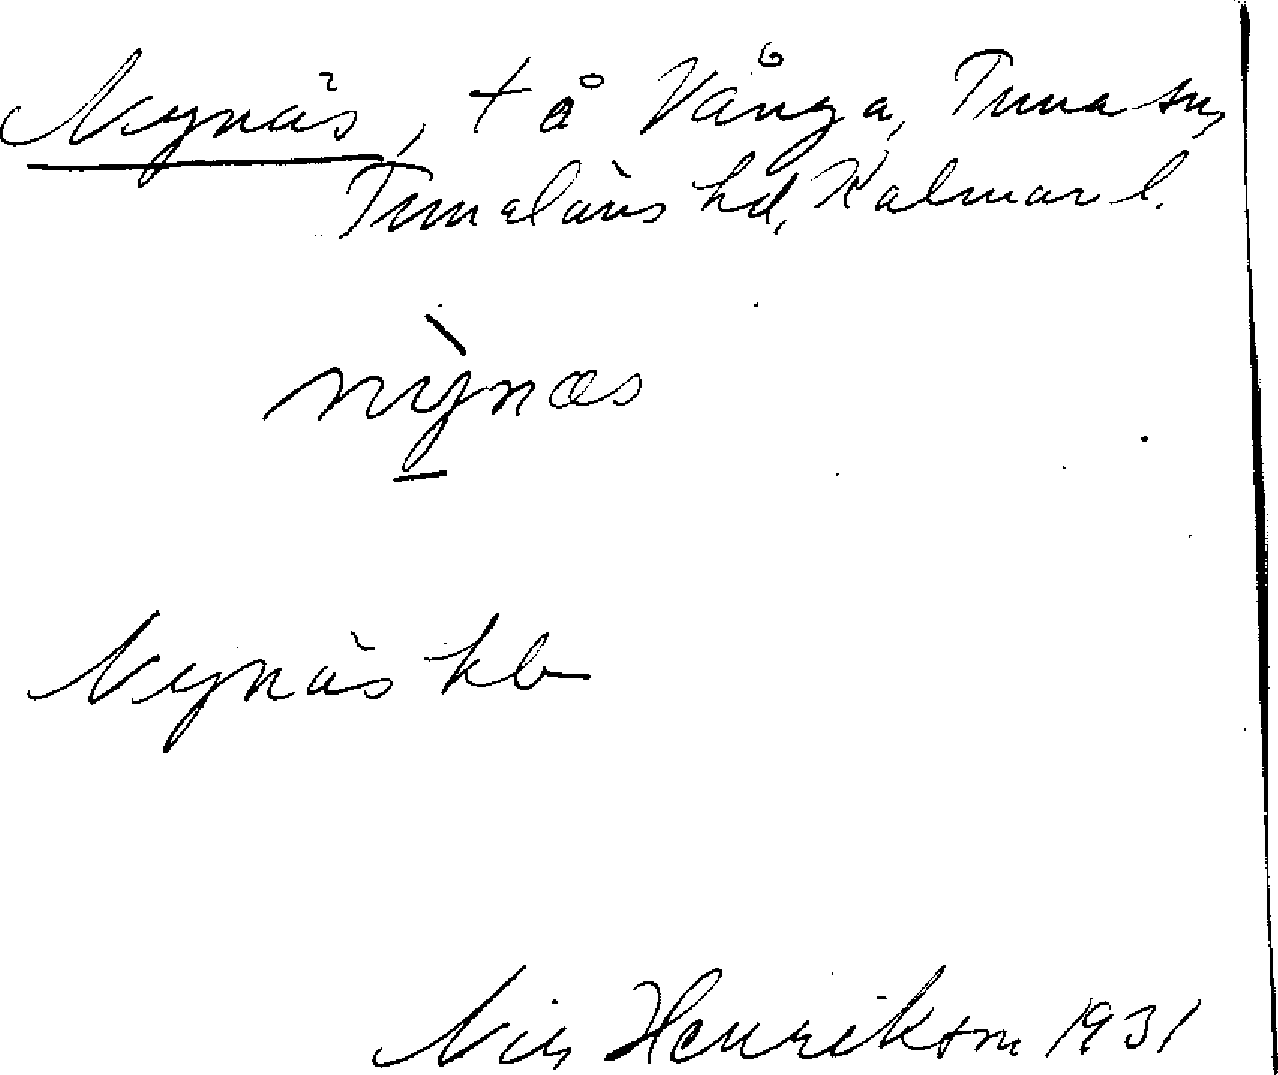 Nynäs, t å Vånga, Tuna sn,
Tunaläns hd, Kalmar l.
nỳnæs
Nynäs kb
Nils Henrikson 1931